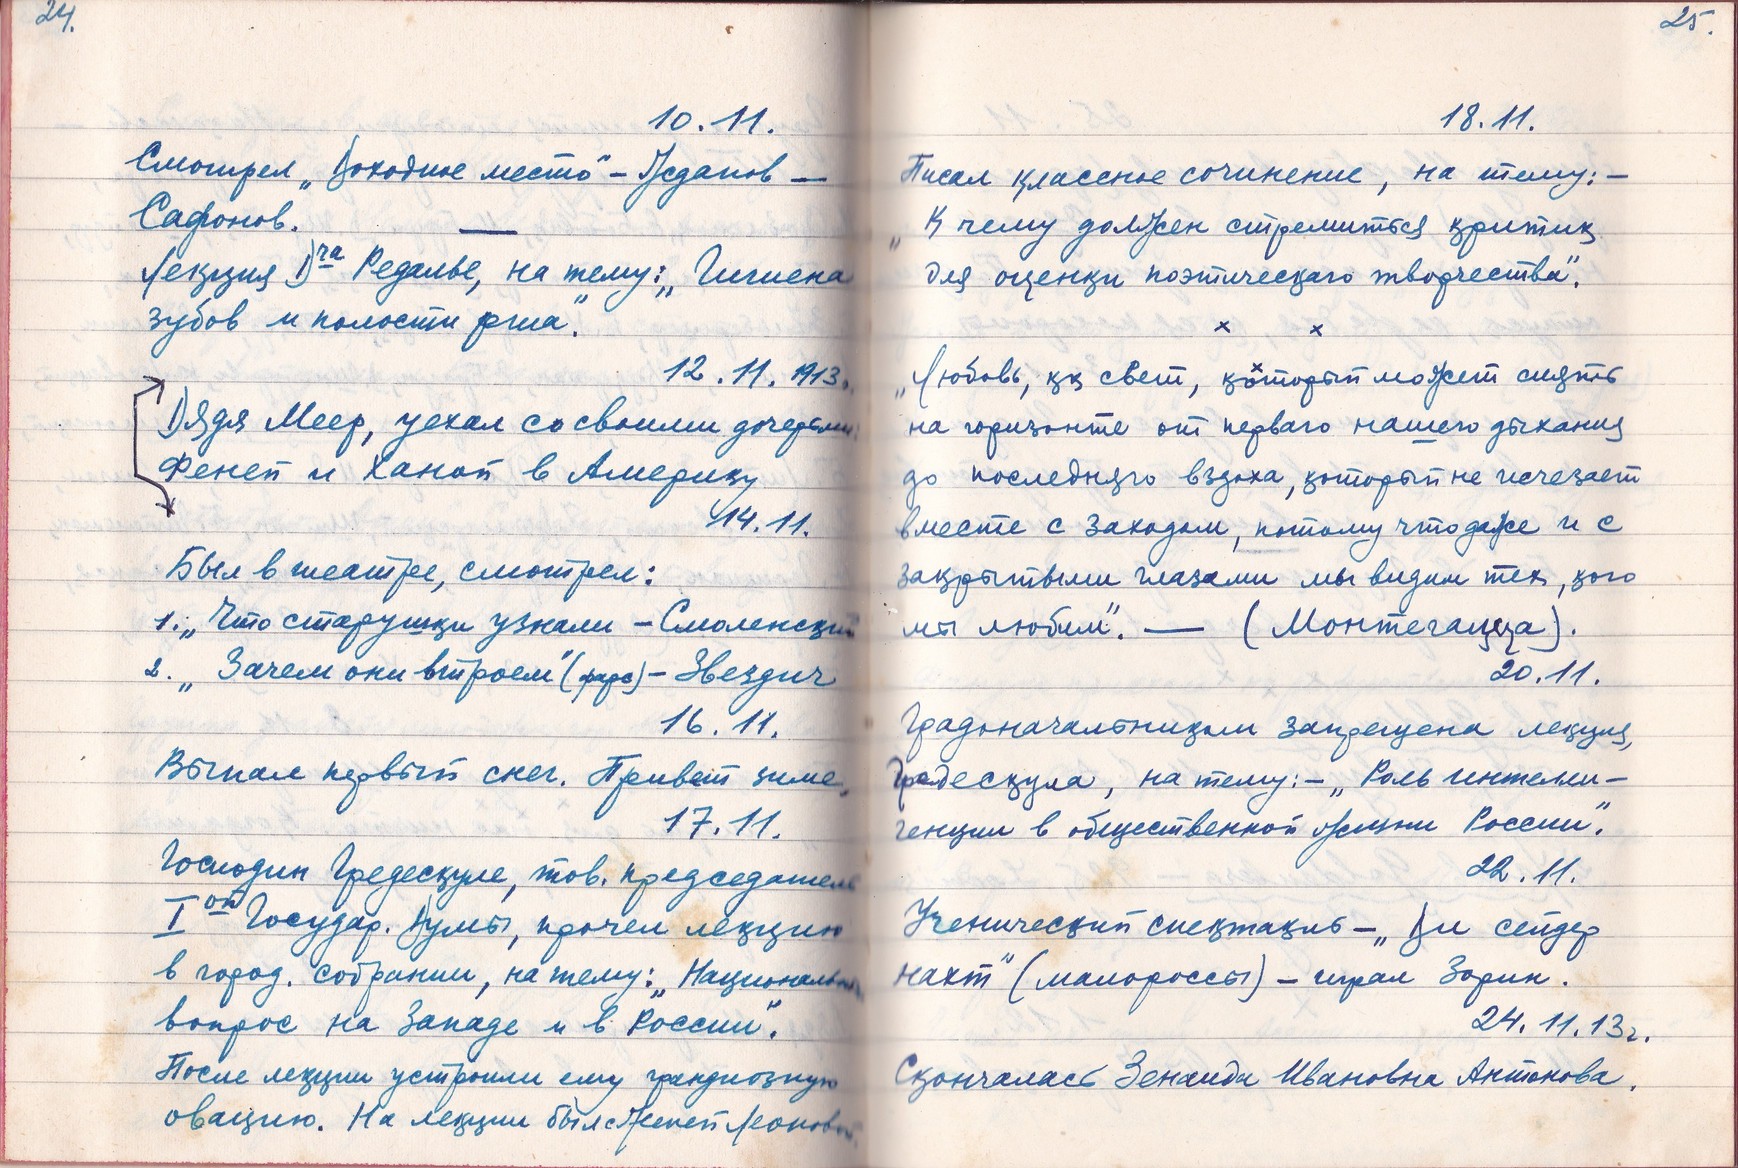 24.
10.11.
Смотрел „Доходное место“ – Жданов —
Сафонов. —
Лекция Д-ра Редалье, на тему: „Гигиена
зубов и полости рта“.
12.11. 1913г.
Дядя Меер, уехал со своими дочерьми:
Фенеп и Ханоп в Америку
14.11.
Был в театре, смотрел:
1. „Что старушки узнали – Смоленский
2. „Зачем они втроем“ (фарс) – Звездич
16.11.
Выпал первый снег. Привет зиме.
17.11.
Господин Гредескуле, тов. председатель
I ой Государ. Думы, прочел лекцию
в город. собрании, на тему: „Национальный
вопрос на Западе и в России“.
После лекции устроили ему грандиозную
овацию. На лекции был с Женей Леоновой
25.
18.11.
Писал классное сочинение, на тему: –
„К чему должен стремиться критик
для оценки поэтическаго творчества“.
х х
„Любовь, кк свет, который может сиять
на горизонте от перваго нашего дыхания
до последняго вздоха, который не исчезает
вместе с заходом, потому что даже и с
закрытыми глазами мы видим тех, кого
мы любим“. — (Монтегацца).
20.11.
Градоначальником запрещена лекция,
Гредескула, на тему: – „Роль интелли–
генции в общественной жизни России“.
22.11.
Ученический спектакль – „Ди сейдер
нахт“ (малороссы) – играл Зорин.
24.11.13г.
Скончалась Зенаида Ивановна Антонова.